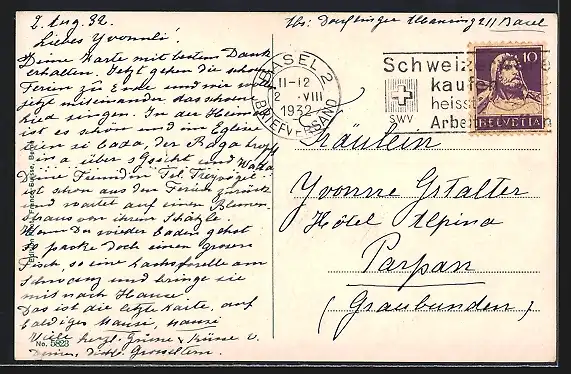 2. Aug. 32.
Liebes Yvonneli!
Deine Karte mit bestem Dank
erhalten. Jetzt gehen die schönen
Ferien zu Ende und wir wollen
jetzt miteinander das schöne
Lied singen. In der Heimat
ist es schön und im Eglisee
tien si bade, der Rege tropft
ein a über s Gsicht und Wada
Deine Freundin Frl.
ist schon aus den Ferien zurück
und wartet auf einen Blumen-
strauss von ihrem Schatzle.
Wenn Du wieder baden gehst
so packe doch einen grossen
Fisch, so eine Lachsforelle am
Schwanz und bringe sie
mit nach Hause.
Das ist die letzte Karte, auf
baldiges
Viele herzl. Grüsse & Küsse v.
Deinen Grosseltern.
No. 5823
Basel
BASEL 2
11-12
2. VIII
1932
BRIEFVERSAND
Schweiz
kaufe
heisst
Arbe
SWV
10
HELVETIA
Fräulein
Yvonne Gstalter
Hôtel Alpina
Parpan
(Graubünden)